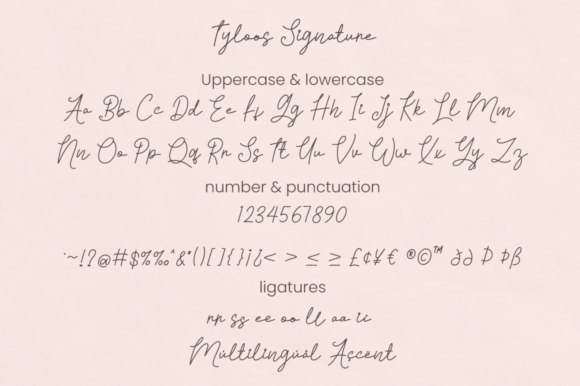 Tyloos Signature
Uppercase & lowercase
Aa Bb Cc Dd Ee Ff Gg Hh Ii Jj Kk Ll Mm
Nn Oo Pp Qq Rr Ss Tt Uu Vv Ww Xx Yy Zz
number & punctuation
1234567890
`~!?@#$%‰^&*()[]{}¡¿< > ≤ ≥ £¢¥€ ®©™ Þß
ligatures
rr ss ee oo ll aa ii
Múltilingúàl Ascent